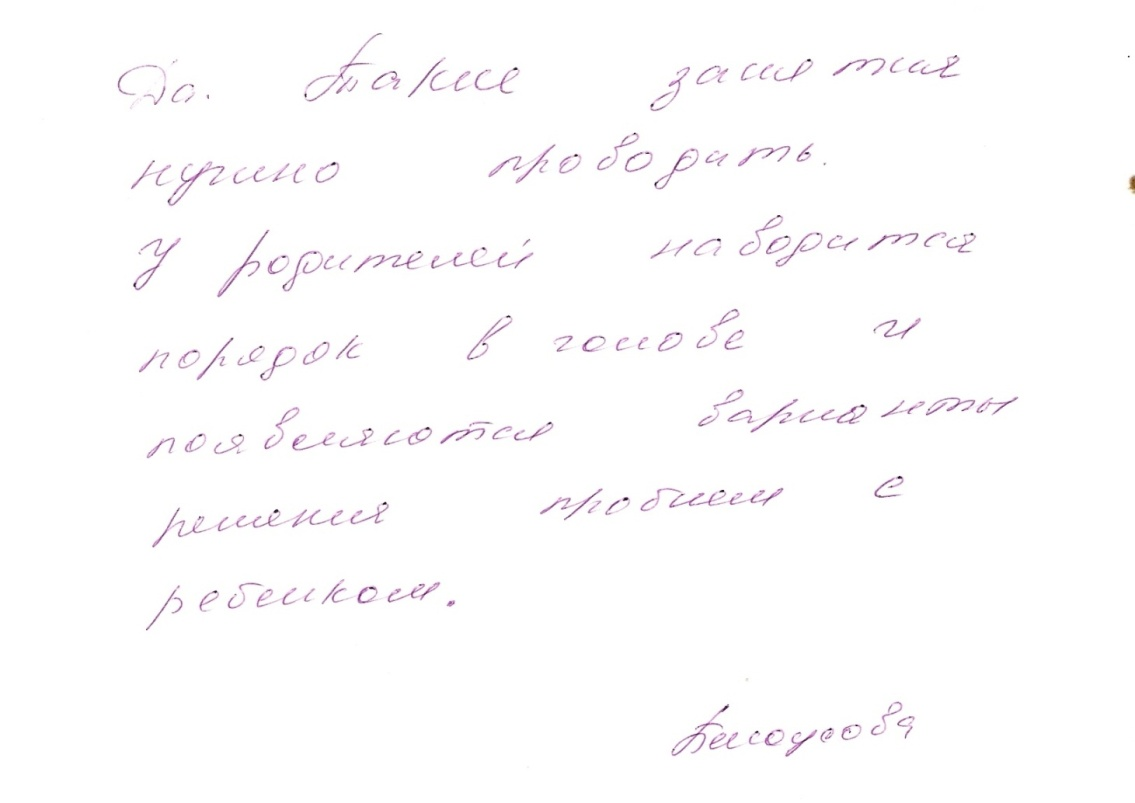 Да. Такие занятия
нужно проводить.
У родителей наводится
порядок в голове и
появляются варианты
решения проблем с
ребенком.
Белоусова